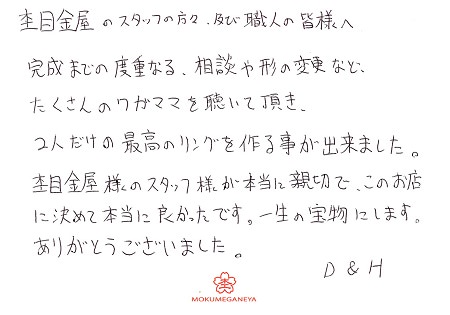 杢目金屋のスタッフの方々、及び職人の皆様へ
完成までの度重なる、相談や形の変更など、
たくさんのワガママを聴いて頂き、
2人だけの最高のリングを作る事が出来ました。
杢目金屋様のスタッフ様が本当に親切で、このお店
に決めて本当に良かったです。一生の宝物にします。
ありがとうございました。
D & H
杢
MOKUMEGANEYA